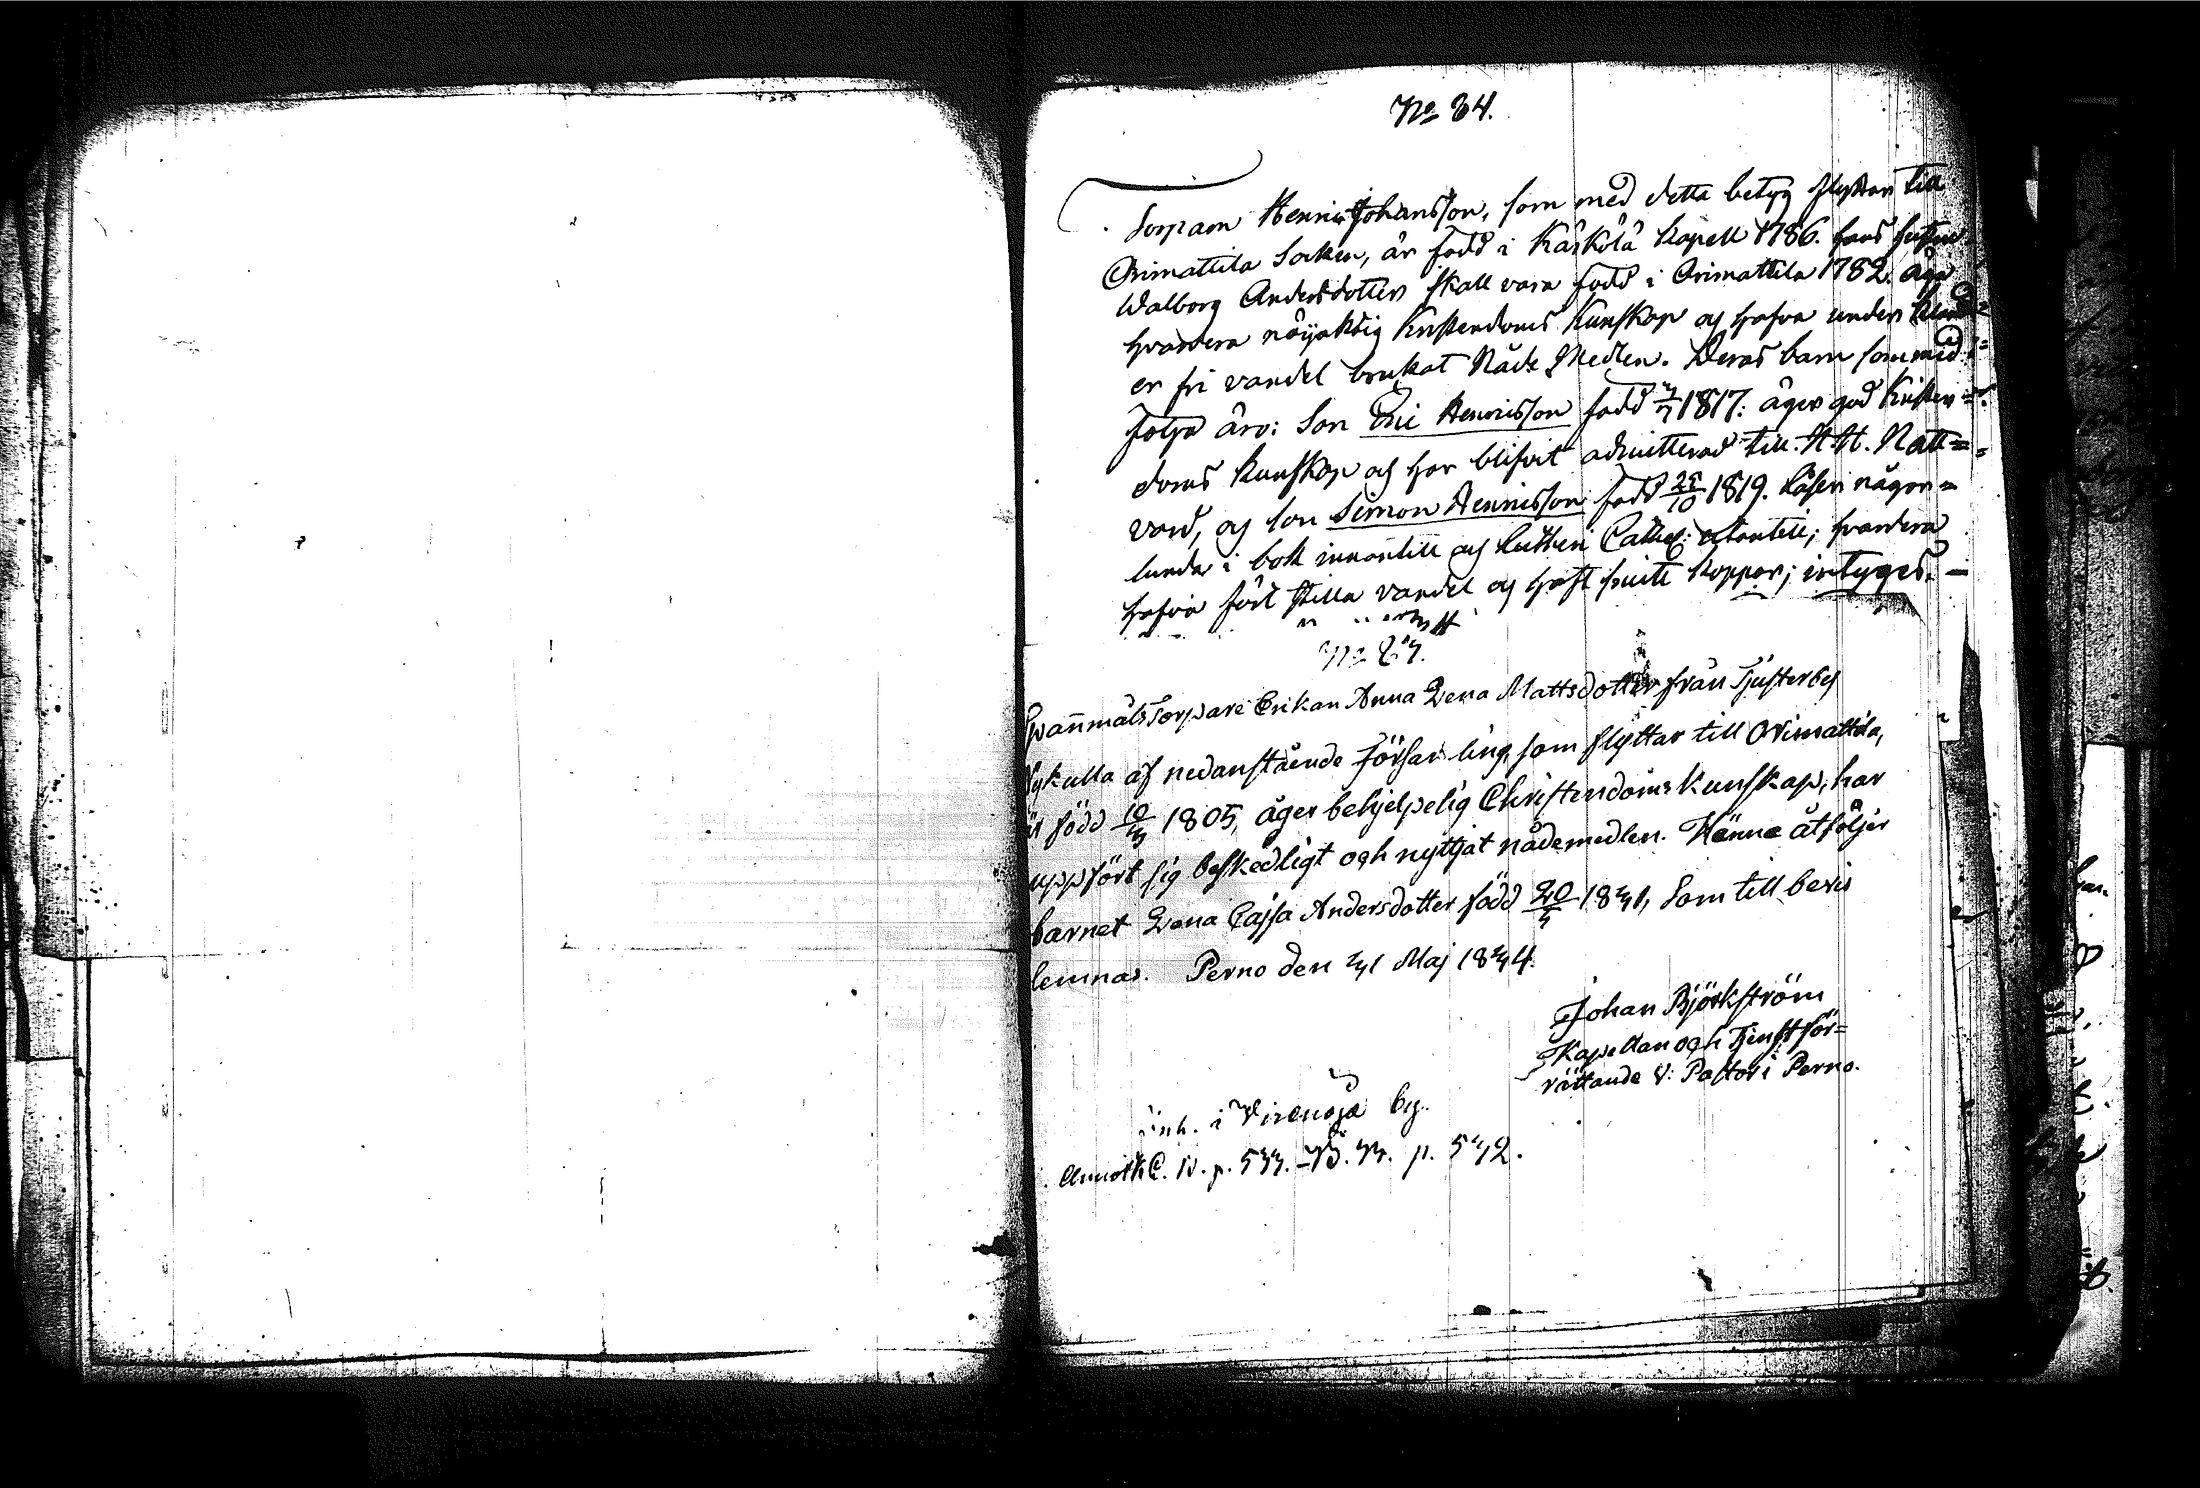 No 84.
Torparn Henric Johansson, som med detta betyg flyttar till
Orimattila Socken, är född i Kärkölä Kapell 1786. hans hustru
Walborg Andersdotter skall vara född i Orimattila 1782. äga
hvardera nöjaktig Kristendoms Kunskap och hafva under
er fri vandel brukat Nåde Medlen. Deras barn som med=
följa äro: Son Eric Henricsson född 1817: äger god Kristen=
doms Kunskap och har blifvit admitterad till H.H. Natt=
vard, och son Simon Henricsson född 25/10 1819. Läser någor=
lunda i bok innantill och Lutheri Cathes: utantill; hvardera
hafva fört stilla vandel och haft Koppor; intyges. —
No 87.
Qvarnmåls Torpare Enkan Anna Lena Mattsdotter från Tjusterby
Nykulla af nedanstående Församling, som flyttar till Orimattila,
är född 10/3 1805, äger behjelpelig Christendoms kunskap, har
uppfört sig beskedligt och nyttjat nådemedlen. Henne åtföljer
barnet Lena Cajsa Andersdotter född 1831, Som till bevis
lemnas. Perno den 31 Maj 1834.
Johan Björkström
Kapellan och Tjenstför=
rättande V: Pastor i Perno.
inh. i Virenoja by.
p. 533. p. 542.